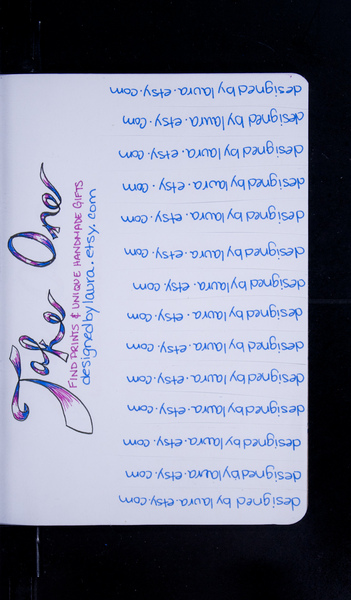 Take One
FIND PRINTS & UNIQUE HANDMADE GIFTS
designedbylaura.etsy.com
designed by laura.etsy.com
designed by laura.etsy.com
designed by laura.etsy.com
designed by laura.etsy.com
designed by laura.etsy.com
designed by laura.etsy.com
designed by laura.etsy.com
designed by laura.etsy.com
designed by laura.etsy.com
designed by laura.etsy.com
designed by laura.etsy.com
designed by laura.etsy.com
designed by laura.etsy.com
designed by laura.etsy.com